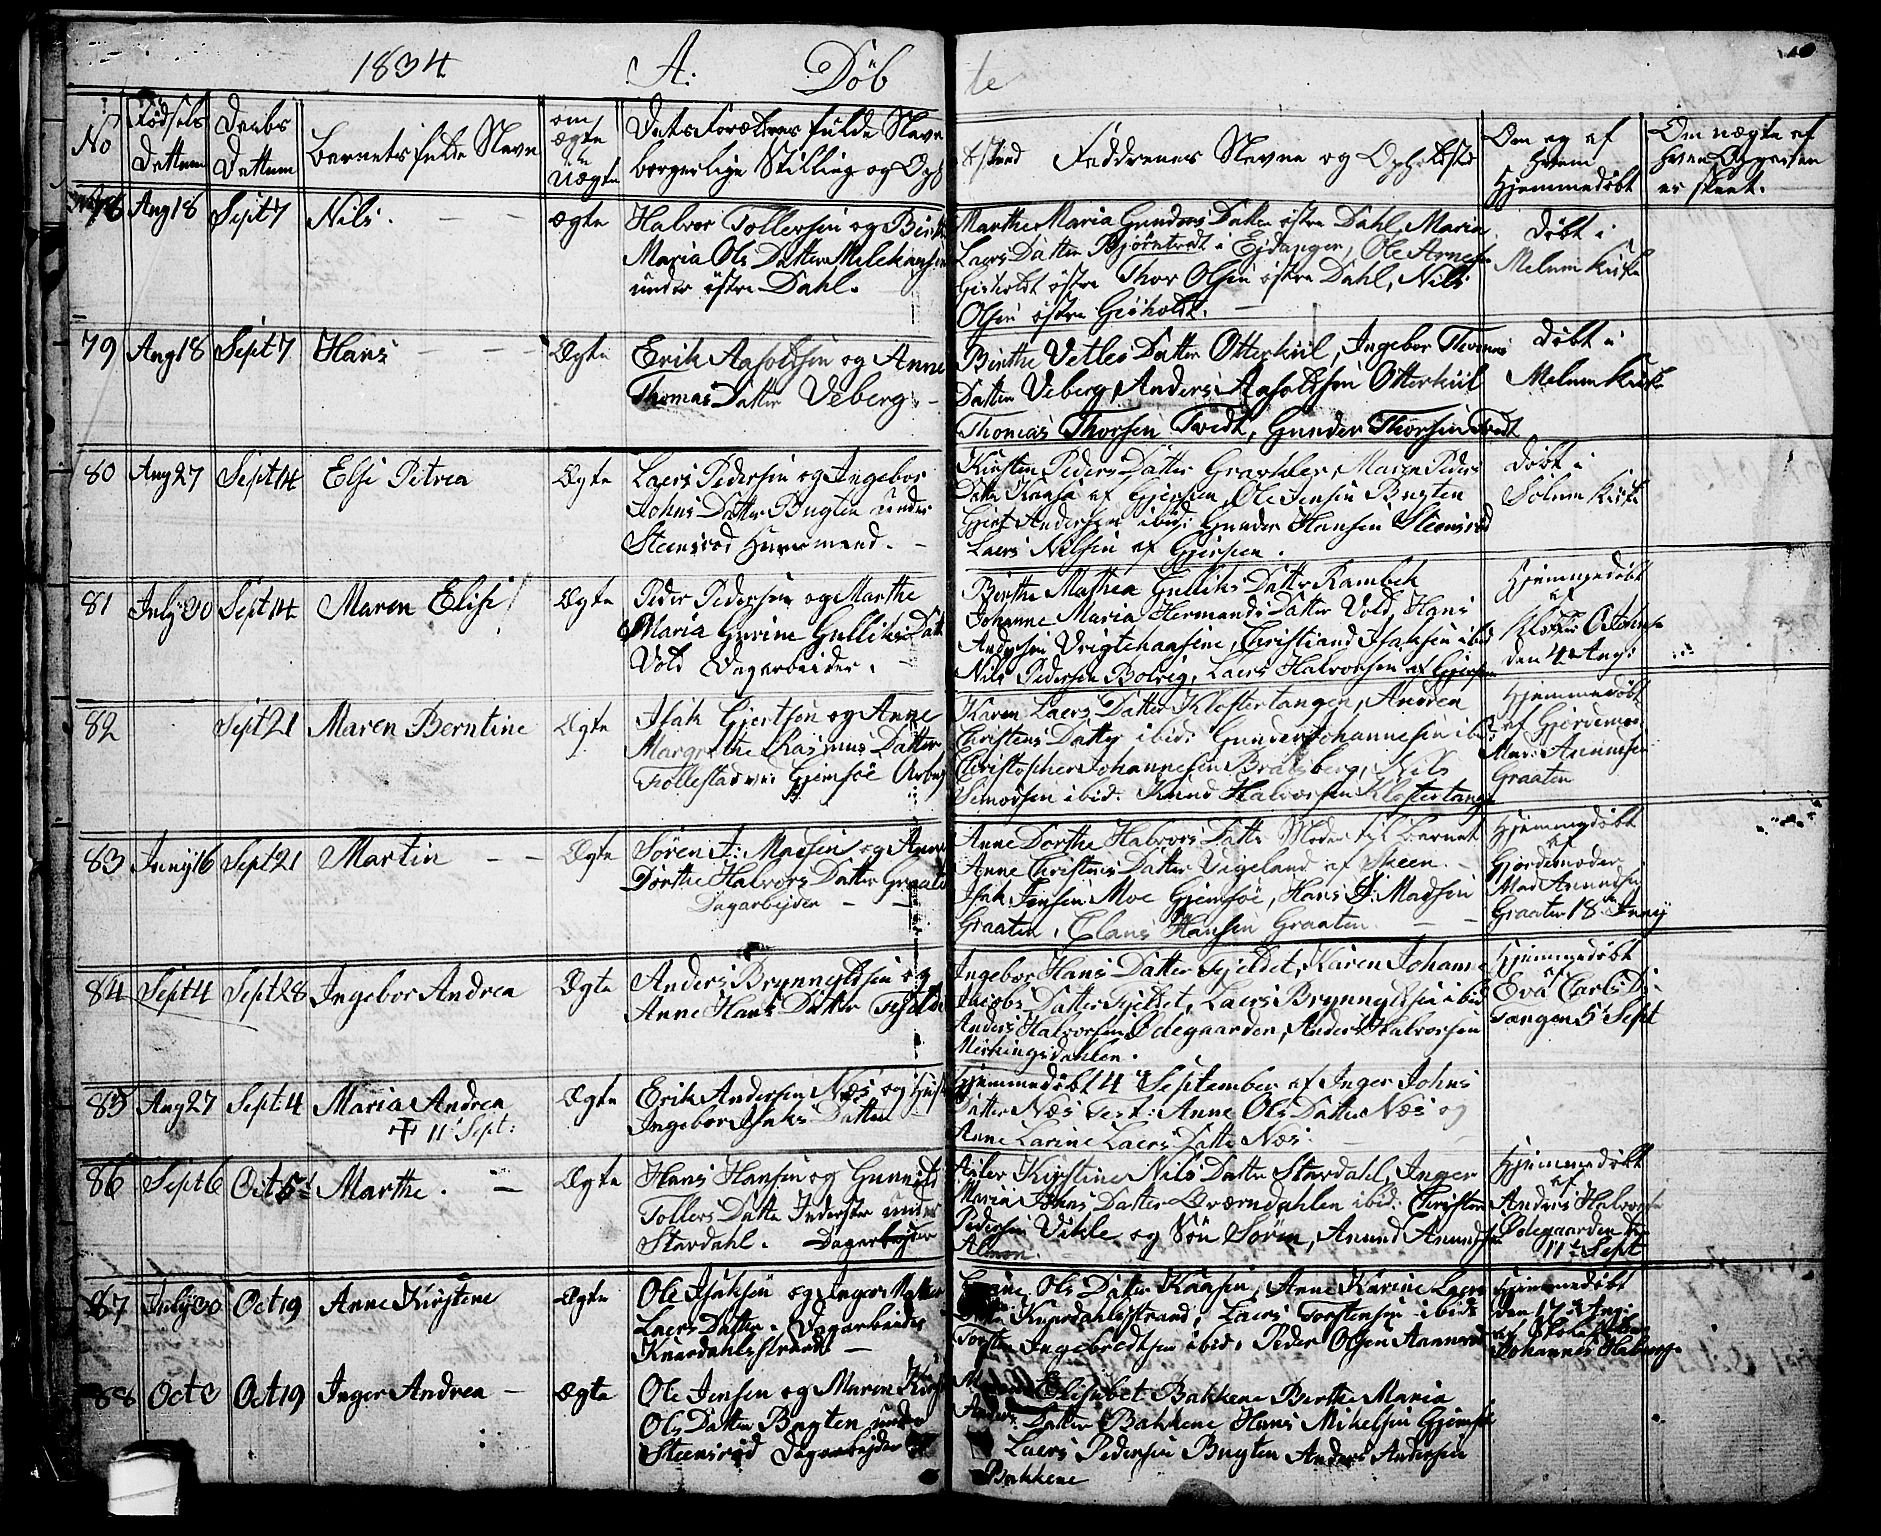 1834 A. Döbte
No
Födsels Dattum
Daabs Dattum
Barnets fulde Navn
om ægte u ægte
Dets Forældres fulde Navn
borgerlige Stilling og Op
Faddrenes Navne og Opholdsted
Om og af hvem Hjemmedöbt
Om nægte af hvem Opgivelsen er skeet.
78 Aug 18 Sept 7 Nils. Ægte
Halvor Tollefsen og Birthe
Maria Ols Datter
under östre Dahl.
Marthe Maria Gunders Datter östre Dahl, Maria
Laers Datter Bjørntvedt i Eidanger, Ole Arnesen
Gisholdt östre Thor Olsen östre Dahl, Nils
Olsen östre Gisholdt.
Döbt i
Melum Kirke
79 Aug 18 Sept 7 Hans Ægte
Erik Aasoldsen og Anne
Thomas Datter Veberg
Birthe Vetles Datter Otterkiil, Ingebor Thomas
Datter Veberg, Anders Aasoldsen Otterkiil
Thomas Thorsen Tvedt, Gunder Thorsen Tvedt
Döbt i
Melum Kirke
80 Aug 27 Sept 14 Else Petrea Ægte
Laers Pedersen og Ingebor
Johns Datter Bugten under
Steensrød Huusmand.
Kirsten Peders Datter Maren Peders
Datter af Gjerpen, Ole Jensen Bugten
Gjert Andersen ibid: Gunder Hansen Steensrød
Laers Nilsen af Gjerpen.
Döbt i
Solum Kirke
81 July 30 Sept 14 Maren Elise Ægte
Peder Pedersen og Marthe
Maria Gurine Gulliks Datter
Vold Dagarbeider.
Birthe Mathea Gulliks Datter Rambek
Johanne Maria Hermands Datter Vold, Hans
Andersen Christiand Isaksen ibid
Nils Pedersen Bolvig, Laers Halvorsen af Gjerpen
Hjemmedöbt
af
den 4 Aug:
82 Sept 21 Maren Berntine Ægte
Isak Gjertsen og Anne
Margrethe Rasmus Datter
Follestad Gjemsöe
Karen Laers Datter Klostertangen, Andrea
Christens Datter ibid: Gunder Johannesen ibid:
Christopher Johannesen Bratsberg, Nils
Simonsen ibid: Knud Halvorsen Klostertangen
Hjemmedöbt
af Gjordemo:
Mad: Amundsen
Graaten
83 Juny 16 Sept 21 Martin Ægte
Sören A: Madsen og Anne
Dorthe Halvors Datter Graaten
Dagarbejder
Anne Dorthe Halvors Datter Moder til Barnet
Anne Christens Datter Vugeland af Skeen.
Isak Jensen Moe Gjemsöe, Hans Madsen
Graaten, Claus Hansen Graaten.
Hjemmedöbt
af
Gjordemoder
Mad Amundsen
Graaten 18 Juny
84 Sept 4 Sept 28 Ingebor Andrea Ægte
Anders Brynnyldsen og
Anne Hans Datter Fjeldet
Ingebor Hans Datter Fjeldet, Karen Johanne
Jacobs Datter Fjeldet, Laers Brynnyldsen ibid
Anders Halvorsen Ödegaarden, Anders Halvorsen
Merkingsdahlen.
Hjemmedöbt
af
Eva Carls D:
Tangen 5 Sept
85 Aug 27 Sept 4 Maria Andrea Ægte
✝ 11 Sept:
Erik Andersen Næs og
Ingebor Isaks Datter
Hjemmedöbt 4 September af Inger Johns
Datter Næs Test: Anne Ols Datter Næs og
Anne Larine Laers Datter Næs.
86 Sept 6 Oct 5 Marthe. Ægte
Hans Hansen og Gunnild
Tollefs Datter Inderste under
Stavdahl. Dagarbejder
Kirstine Nils Datter Stavdahl, Inger
Maria Johns Datter Qværndahlen ibid: Christen
Pedersen og Sön Sören, Amund Amundsen
Hjemmedöbt
af
Anders Halvorsen
Ödegaarden den
11 Sept
87 July 30 Oct 19 Anne Kirstene Ægte
Ole Isaksen og Inger
Laers Datter. Dagarbeider
Knardahlsstrand
Ols Datter Anne Karine Laers
Datter Knardahlsstrand, Laers Torstensen ibid:
Torsten Ingebredtsen ibid. Peder Olsen
Hjemmedöbt
den 17 Aug:
af
Johannes
88 Oct Oct 19 Inger Andrea Ægte
Ole Jensen og Maren
Ols Datter Bugten under
Steensrød Dagarbejder
Elisabet Bakkene Berthe Maria
Anders Datter Bakkene Hans Mikelsen Gjemsöe
Laers Pedersen Bugten Anders Andersen
Bakkene